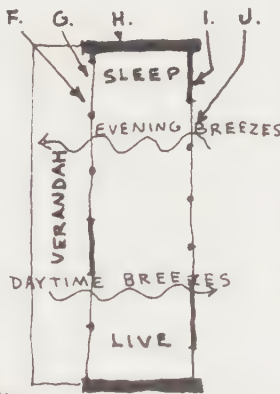 F. G. H. I. J.
SLEEP
EVENING BREEZES
VERANDAH
DAYTIME BREEZES
LIVE